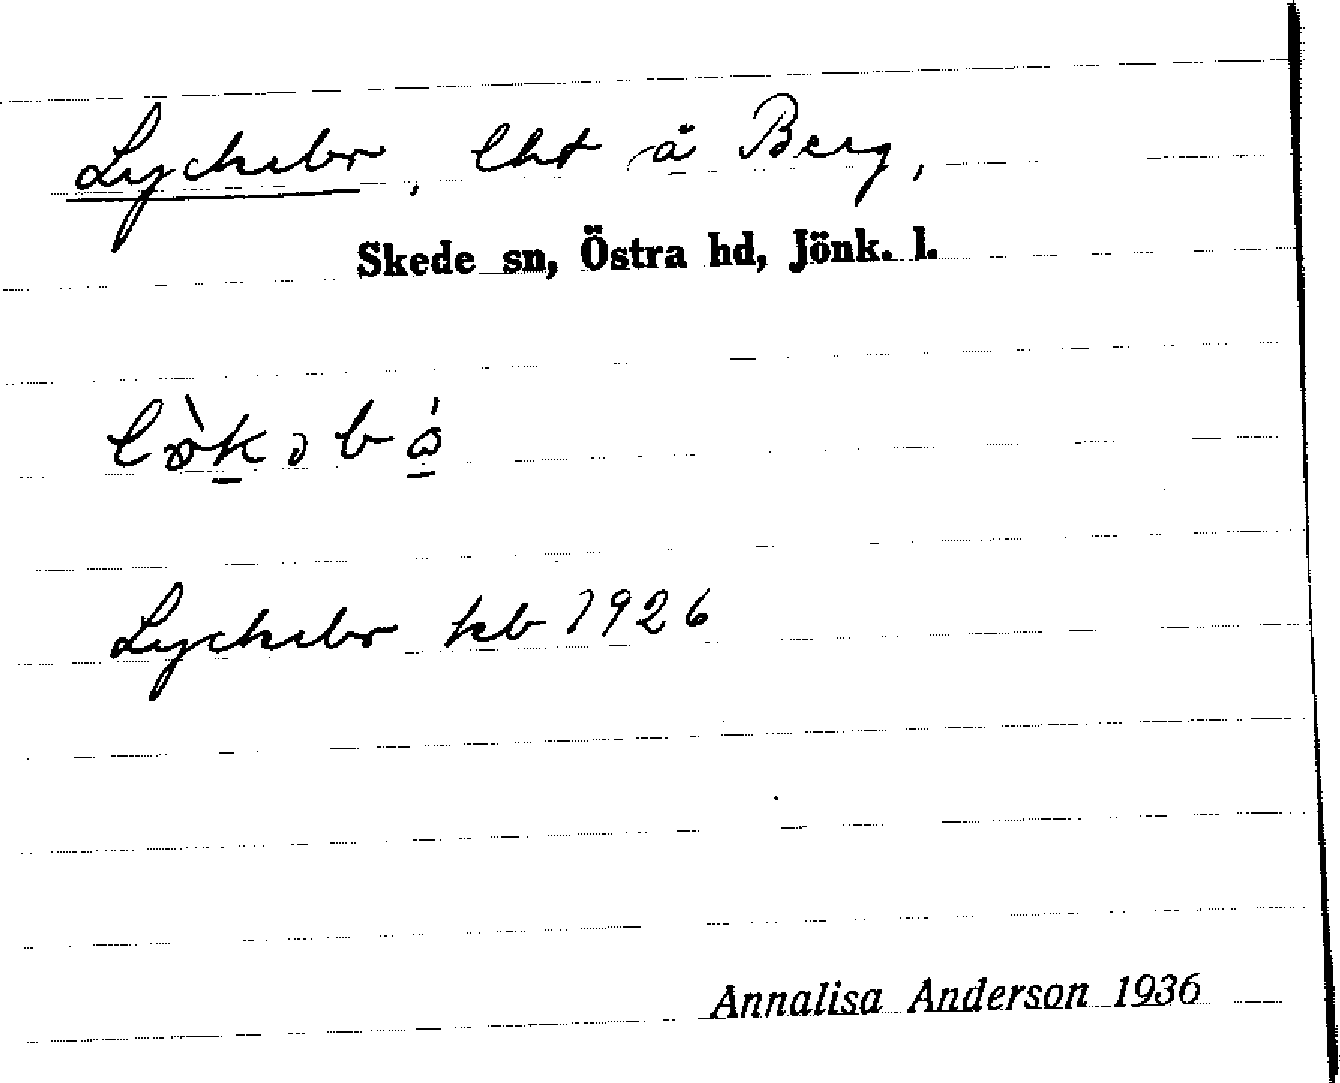 Lyckebo, lht å Berg,
Skede sn, Östra hd, Jönk. l.
Lyckebo kb 1926
Annalisa Anderson 1936